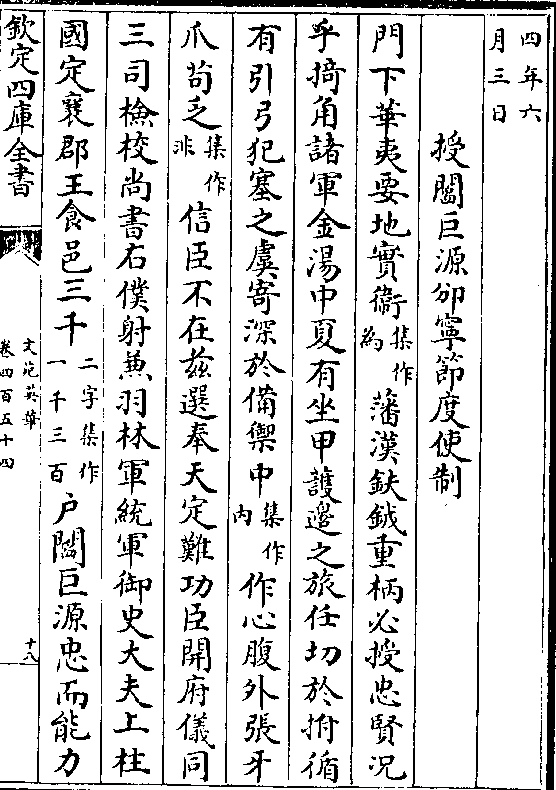 四年六
月三日
授閻巨源邠寧節度使制
門下華夷要地實衞集作為藩漢鈇鉞重柄必授忠賢况
乎掎角諸軍金湯中夏有坐甲護邊之旅任切於拊循
有引弓犯塞之虞寄深於備禦中集作内作心腹外張牙
爪苟乏集作非信臣不在兹選奉天定難功臣開府儀同
三司檢校尚書右僕射兼羽林軍統軍御史大夫上柱
國定襄郡王食邑三千二字集作一千三百户閻巨源忠而能力
欽定四庫全書
文苑英華
卷四百五十四
十八